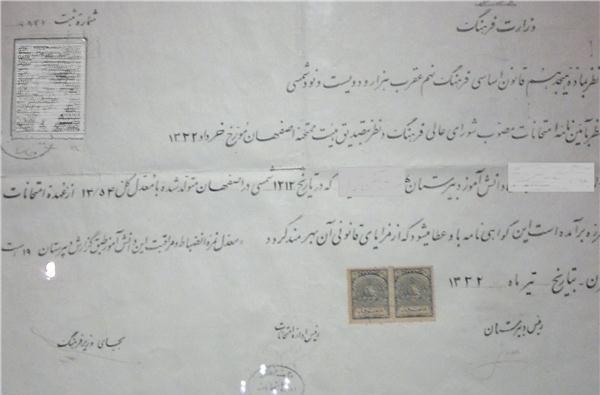 وزارت فرهنگ
شماره ثبت
نظر بماده هیجدهم قانون اساسی فرهنگ نهم عقرب هزار و دویست و نود شمسی
نظر بآئین نامه امتحانات مصوب شورای عالی فرهنگ و نظر بتصدیق هیئت ممتحنه اصفهان مورخ خرداد ۱۳۲۲
دانش آموز دبیرستان که در تاریخ ۱۳۱۲ شمسی در اصفهان متولد شده با معدل کل ۱۳/۵۴ از عهده امتحانات
برآمده است این گواهی نامه باو عطا میشود که از مزایای قانونی آن بهره مند گردد و معدل نمره انضباط و مراقبت این دانش آموز طبق گزارش دبیرستان ۱۹ است
بتاریخ تیر ماه ۱۳۲۲
رئیس دبیرستان
رئیس اداره امتحانات
بجای وزیر فرهنگ